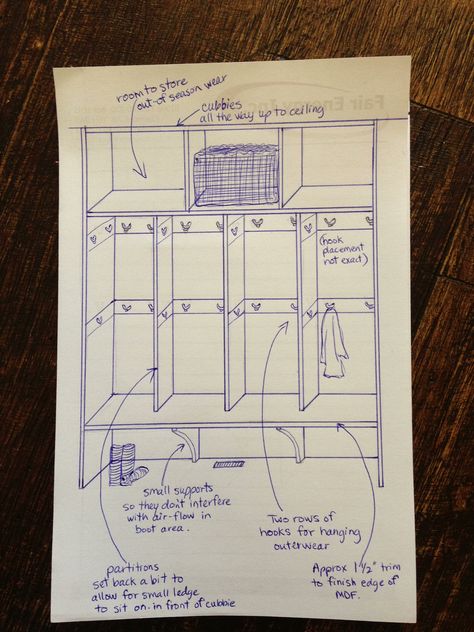 Fair Energy Inc
room to store
out-of season wear
cubbies
all the way up to ceiling
(hook
placement
not exact)
small supports
so they don't interfere
with air-flow in
boot area.
Two rows of
hooks for hanging
outerwear
partitrons
set back a bit to
allow for small ledge
to sit on in front of cubbie
Approx 1 1/2" trim
to finish edge of
MDF.